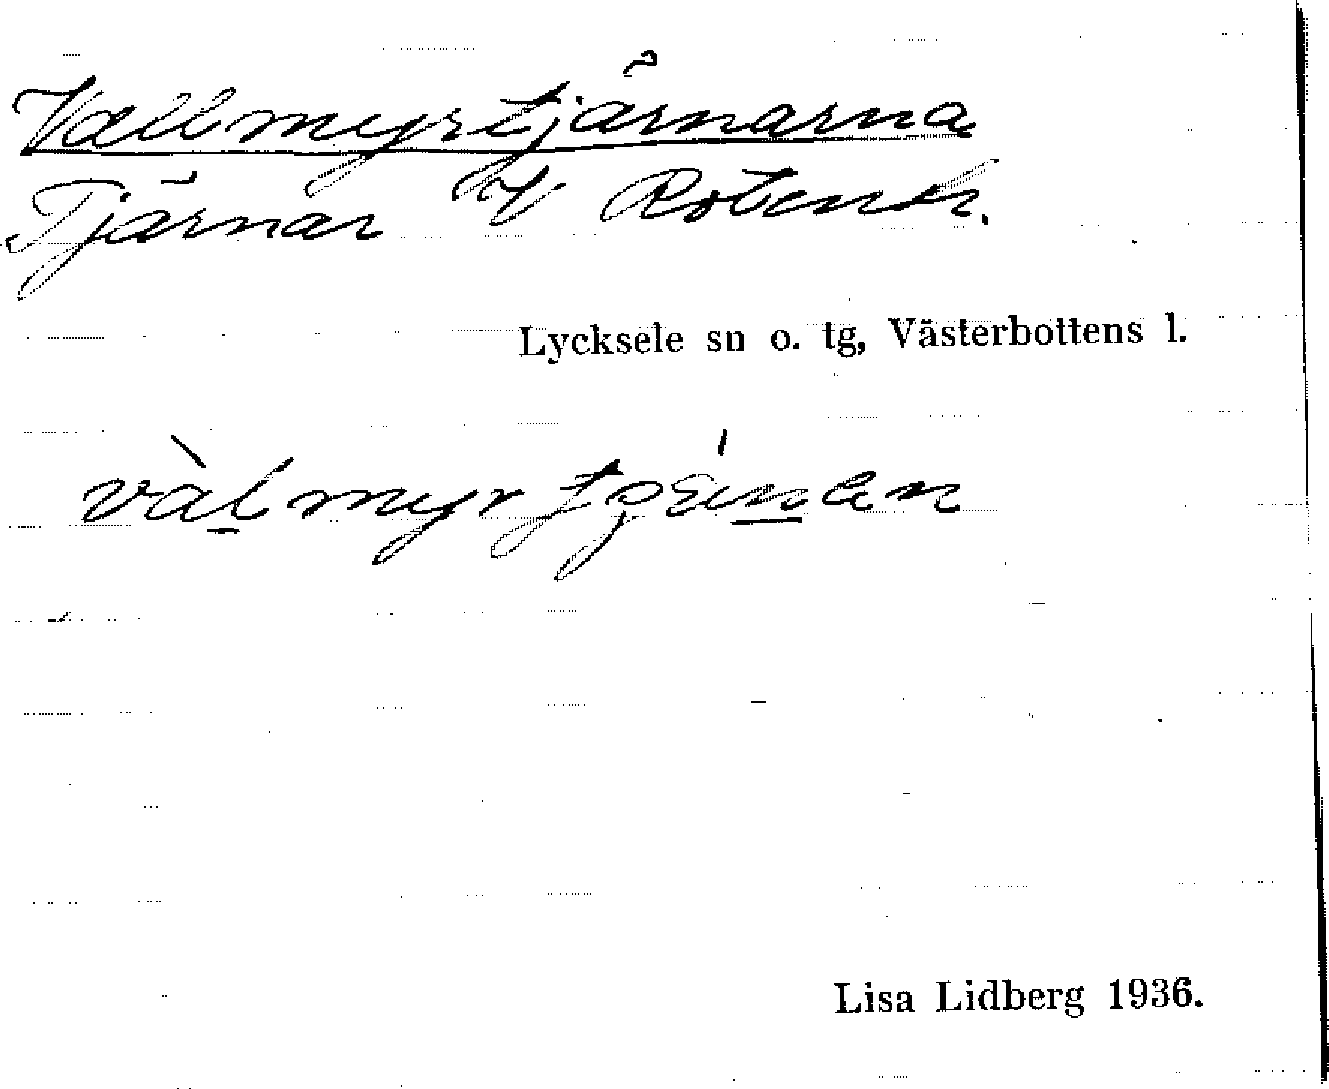 Vallmyrtjärnarna
Tjärnar V Robentr.
Lycksele sn o. tg, Västerbottens l.
vàlmyr
Lisa Lidberg 1936.